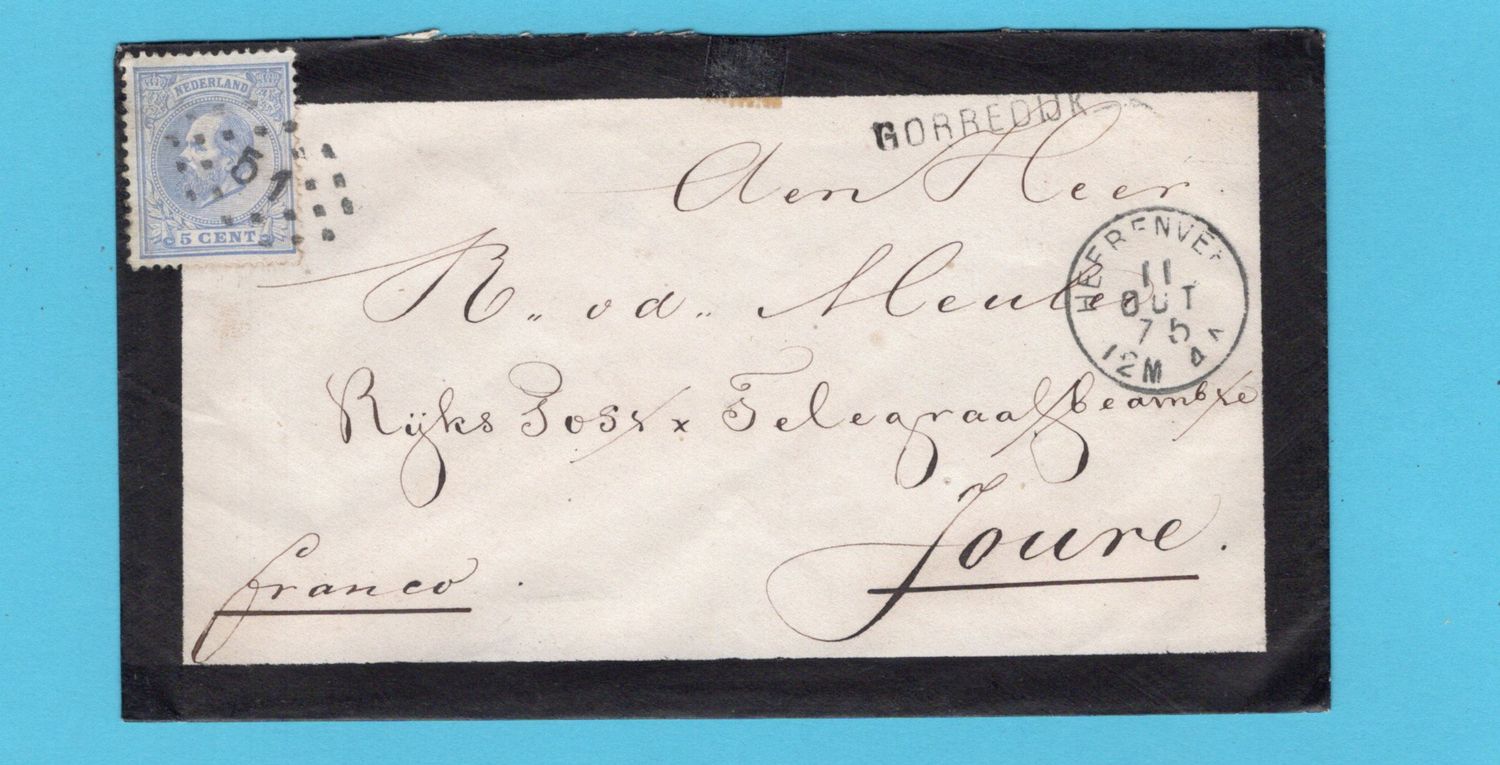 NEDERLAND
51
5 CENT
GORREDIJK
Aan Heer
R. v.d. Meulen
HEERENVEE
11
OCT
75
12M 4A
Rijks Post x Telegraafbeambte
Joure.
franco.